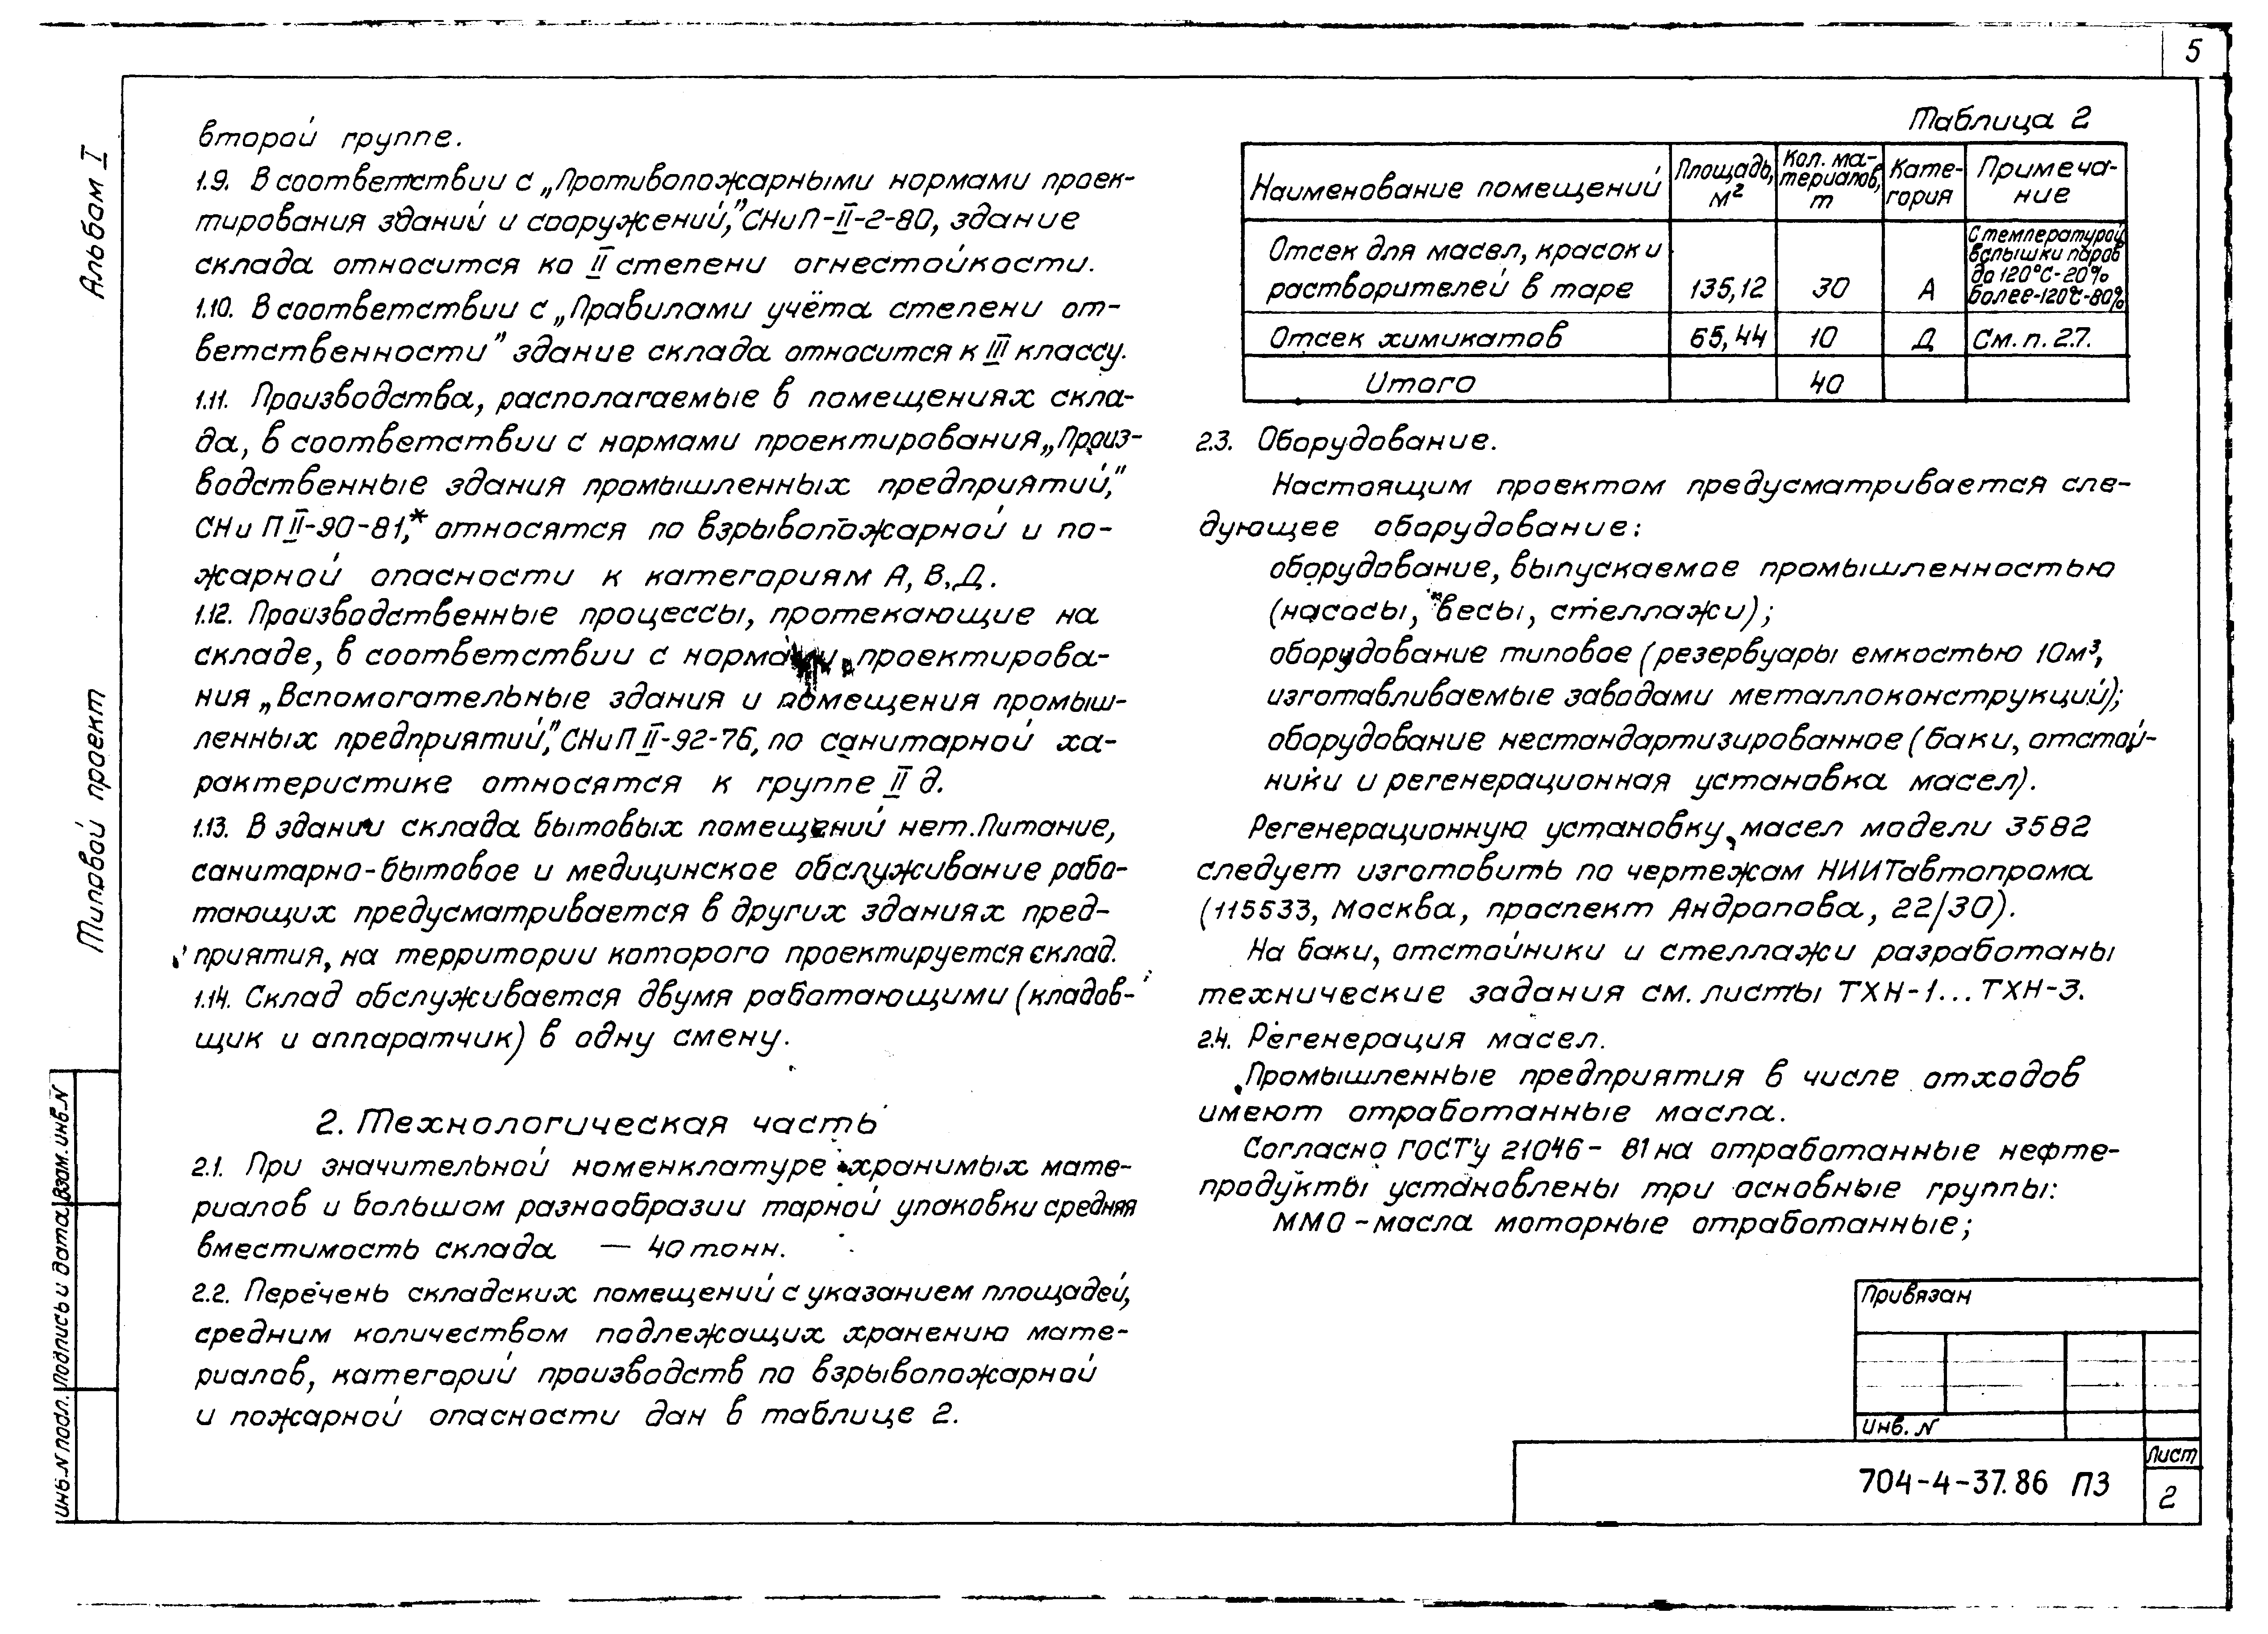 5
Альбом I
Типовой проект
второй группе.
1.9. В соответствии с „Противопожарными нормами проек-
тирования зданий и сооружений," СНиП-II-2-80, здание
склада относится ко II степени огнестойкости.
1.10. В соответствии с „Правилами учёта степени от-
ветственности" здание склада относится к III классу.
1.11. Производства, располагаемые в помещениях скла-
да, в соответствии с нормами проектирования „Произ-
водственные здания промышленных предприятий,"
СНиП II-90-81,* относятся по взрывопожарной и по-
жарной опасности к категориям А, В, Д.
1.12. Производственные процессы, протекающие на
складе, в соответствии с нормами проектирова-
ния „Вспомогательные здания и помещения промыш-
ленных предприятий," СНиП II-92-76, по санитарной ха-
рактеристике относятся к группе II д.
1.13. В здании склада бытовых помещений нет. Питание,
санитарно-бытовое и медицинское обслуживание рабо-
тающих предусматривается в других зданиях пред-
приятия, на территории которого проектируется склад.
1.14. Склад обслуживается двумя работающими (кладов-
щик и аппаратчик) в одну смену.
2. Технологическая часть
2.1. При значительной номенклатуре хранимых мате-
риалов и большом разнообразии тарной упаковки средняя
вместимость склада — 40 тонн.
2.2. Перечень складских помещений с указанием площадей,
средним количеством подлежащих хранению мате-
риалов, категорий производств по взрывопожарной
и пожарной опасности дан в таблице 2.
Таблица 2
Наименование помещений Площадь, м² Кол. ма-териалов, т Кате-гория Примеча-ние
Отсек для масел, красок и растворителей в таре 135,12 30 А С температурой вспышки паров до 120°С-20% более-120°С-80%
Отсек химикатов 65,44 10 Д См. п. 2.7.
Итого 40
2.3. Оборудование.
Настоящим проектом предусматривается сле-
дующее оборудование:
оборудование, выпускаемое промышленностью
(насосы, весы, стеллажи);
оборудование типовое (резервуары емкостью 10м³,
изготавливаемые заводами металлоконструкций);
оборудование нестандартизированное (баки, отстой-
ники и регенерационная установка масел).
Регенерационную установку масел модели 3582
следует изготовить по чертежам НИИТавтопрома
(115533, Москва, проспект Андропова, 22/30).
На баки, отстойники и стеллажи разработаны
технические задания см. листы ТХН-1...ТХН-3.
2.4. Регенерация масел.
Промышленные предприятия в числе отходов
имеют отработанные масла.
Согласно ГОСТу 21046-81 на отработанные нефте-
продукты установлены три основные группы:
ММО - масла моторные отработанные;
Привязан
Инв. N
704-4-37.86 ПЗ
Лист
2
Взам. инв. N
Подпись и дата
Инв. N подл.